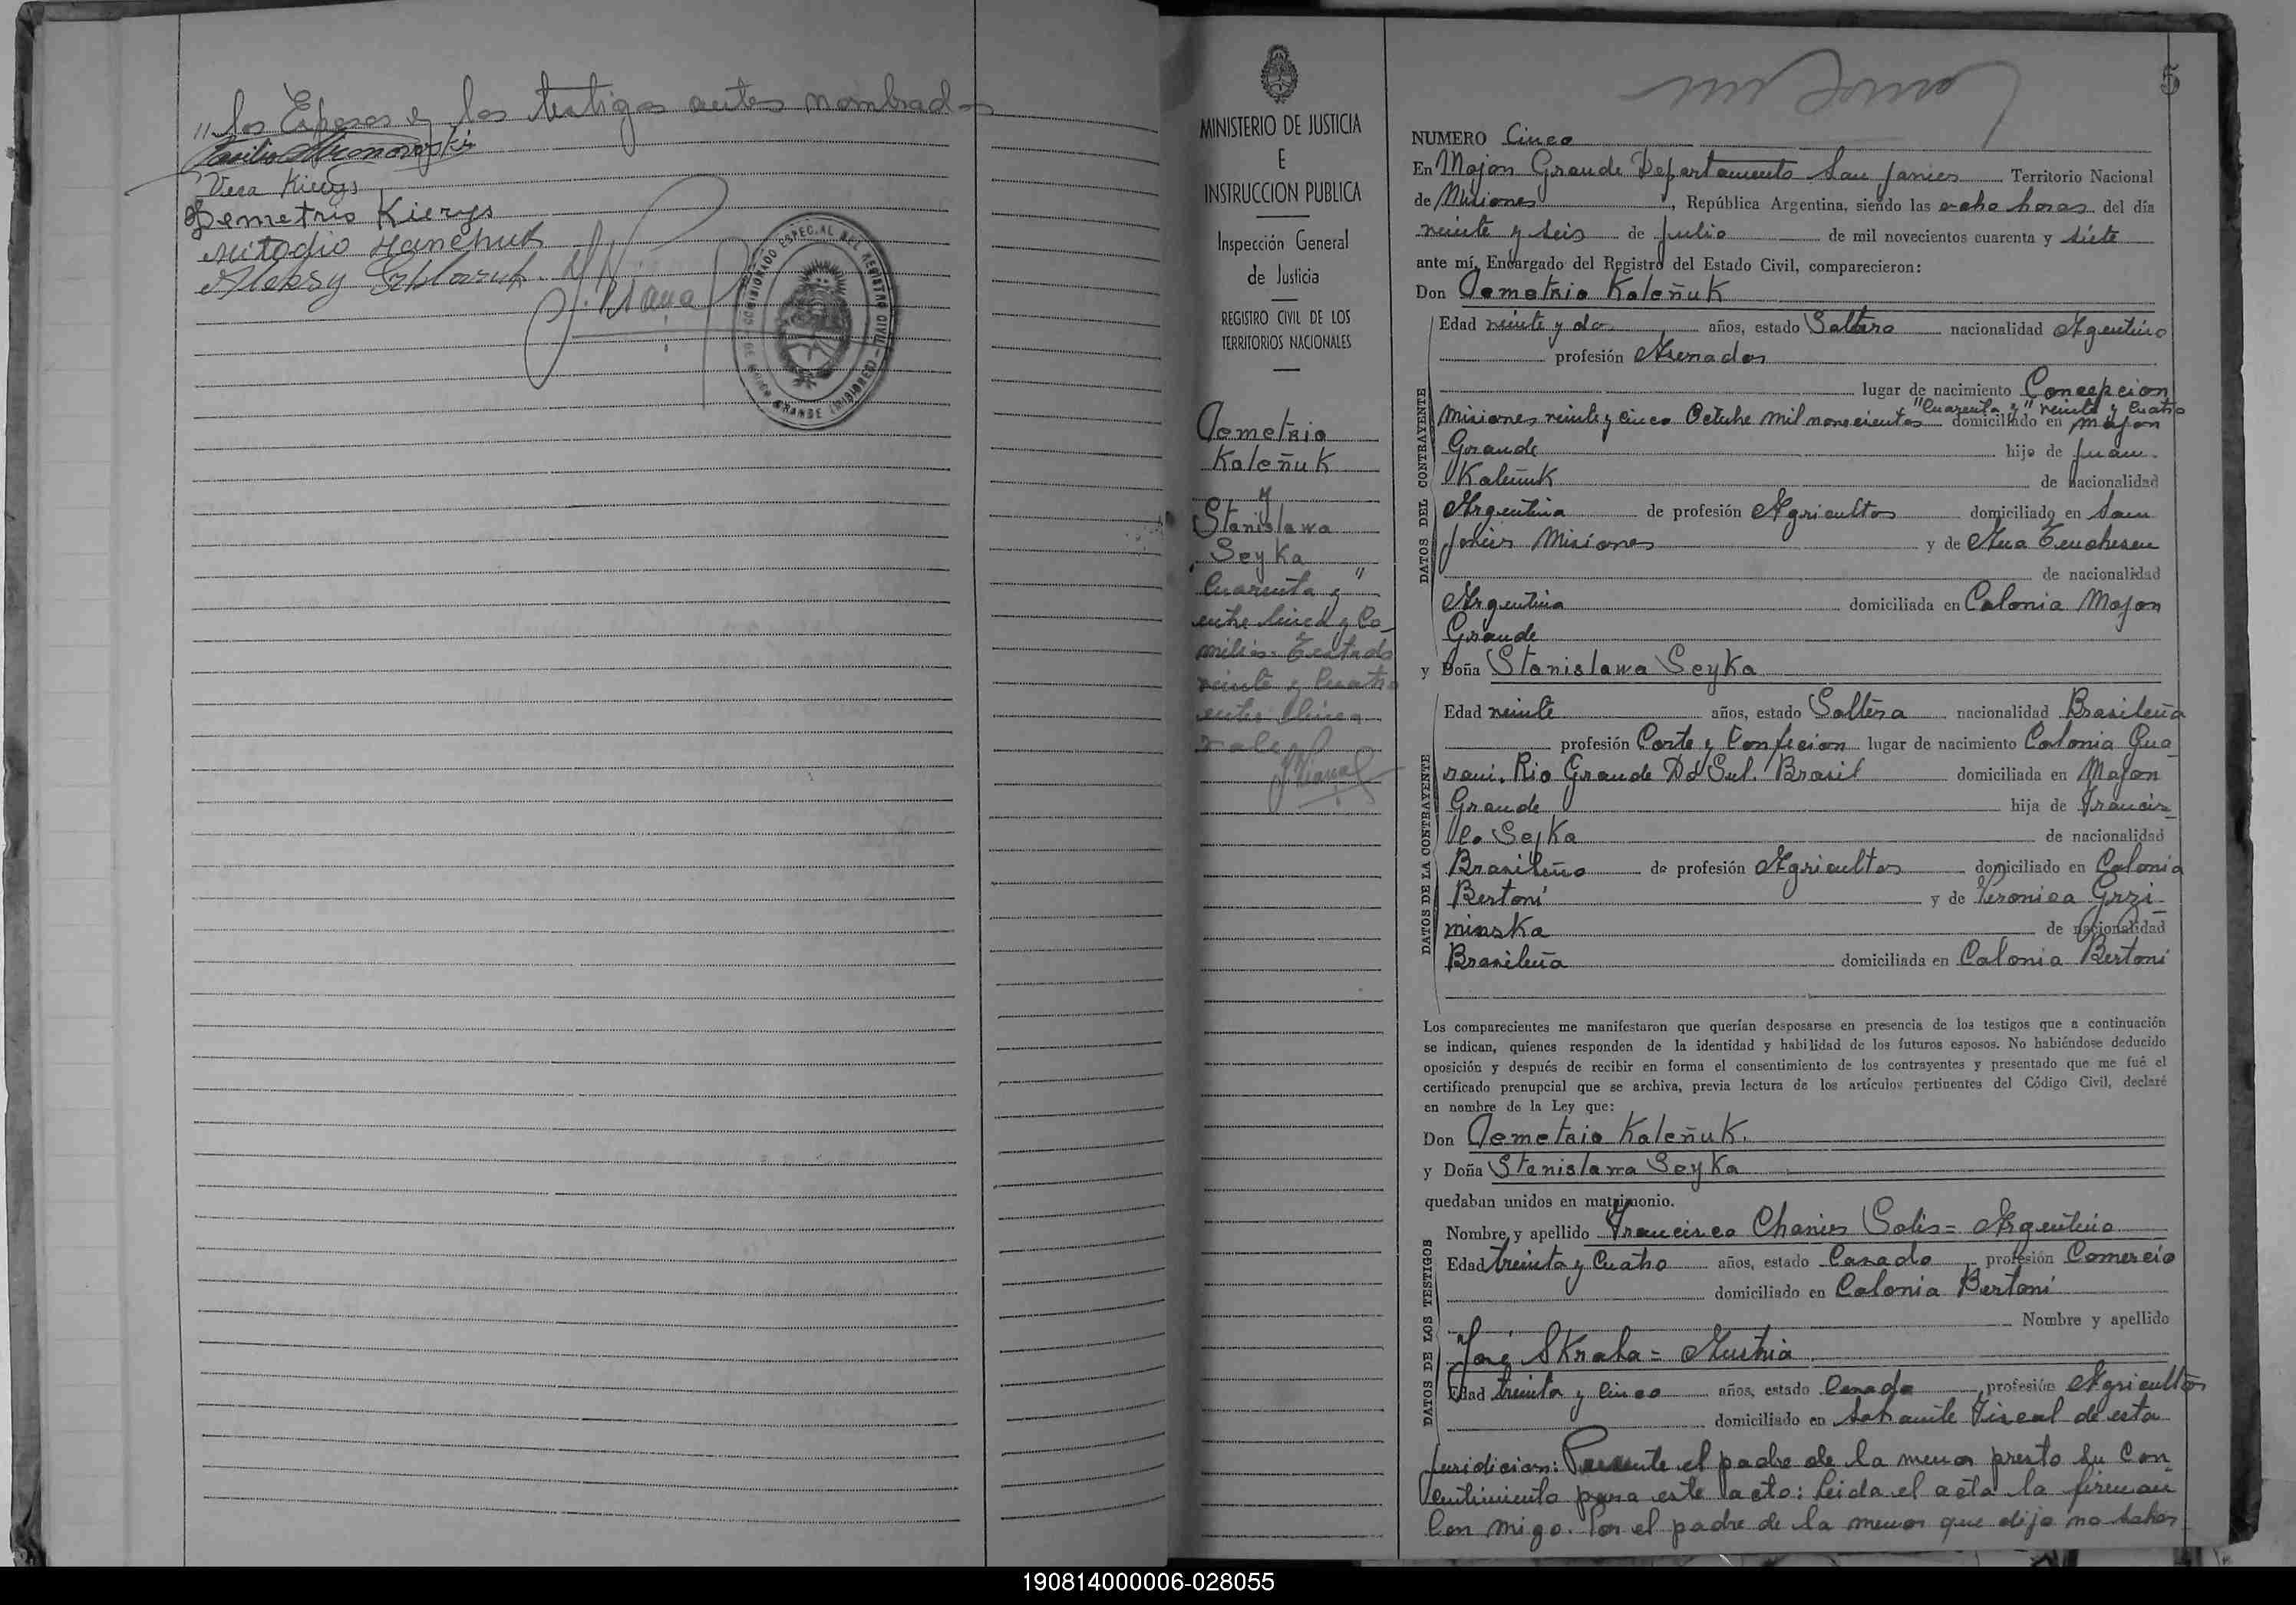 "los Esposos y los testigos antes nombrados
Vera Kierys
Demetrio Kierys
Mitodio Hanchuk
Aleksy
COMISIONADO ESPECIAL DEL REGISTRO CIVIL
GRANDE (MISIONES)
MINISTERIO DE JUSTICIA
E
INSTRUCCION PUBLICA
Inspección General
de Justicia
REGISTRO CIVIL DE LOS
TERRITORIOS NACIONALES
Demetrio
Koleñuk
y
Stanislawa
Seyka
Cuarenta y"
entre linea y Co-
milias. Testado
veinte y Cuatro
entre linea
vale
5
NUMERO Cinco
En Mojon Grande Departamento San Javier Territorio Nacional
de Misiones, República Argentina, siendo las ocho horas del día
veinte y seis de Julio de mil novecientos cuarenta y siete
ante mí, Encargado del Registro del Estado Civil, comparecieron:
Don Demetrio Koleñuk
DATOS DEL CONTRAYENTE
Edad veinte y dos años, estado Soltero nacionalidad Argentino
profesión Aserrador
lugar de nacimiento Concepcion
"Cuarenta y" veinte y Cuatro
Misiones veinte y cinco Octubre mil novecientos domiciliado en Mojon
Grande hijo de Juan
Kaleñuk de nacionalidad
Argentina de profesión Agricultor domiciliado en San
Javier Misiones y de Ana
de nacionalidad
Argentina domiciliada en Colonia Mojon
Grande
y Doña Stanislawa Seyka
DATOS DE LA CONTRAYENTE
Edad veinte años, estado Soltera nacionalidad Brasileña
profesión Corte y Confecion lugar de nacimiento Colonia Gua-
rani. Rio Grande Do Sul. Brasil domiciliada en Mojon
Grande hija de Francis-
co Seyka de nacionalidad
Brasileño de profesión Agricultor domiciliado en Colonia
Bertoni y de Veronica Grzi-
minska de nacionalidad
Brasileña domiciliada en Colonia Bertoni
Los comparecientes me manifestaron que querían desposarse en presencia de los testigos que a continuación
se indican, quienes responden de la identidad y habilidad de los futuros esposos. No habiéndose deducido
oposición y después de recibir en forma el consentimiento de los contrayentes y presentado que me fué el
certificado prenupcial que se archiva, previa lectura de los artículos pertinentes del Código Civil, declaré
en nombre de la Ley que:
Don Demetrio Koleñuk.
y Doña Stanislawa Seyka
quedaban unidos en matrimonio.
DATOS DE LOS TESTIGOS
Nombre y apellido Francisco Solis = Argentino
Edad treinta y Cuatro años, estado Casado profesión Comercio
domiciliado en Colonia Bertoni
Nombre y apellido
José Skraba = Austria
Edad treinta y Cinco años, estado Casado profesión Agricultor
domiciliado en Fiscal de esta
Juridicion: Presente el padre de la menor presto su Con-
centimiento para este acto: leida el acta la firman
Con migo. Por el padre de la menor que dijo no saber
190814000006-028055